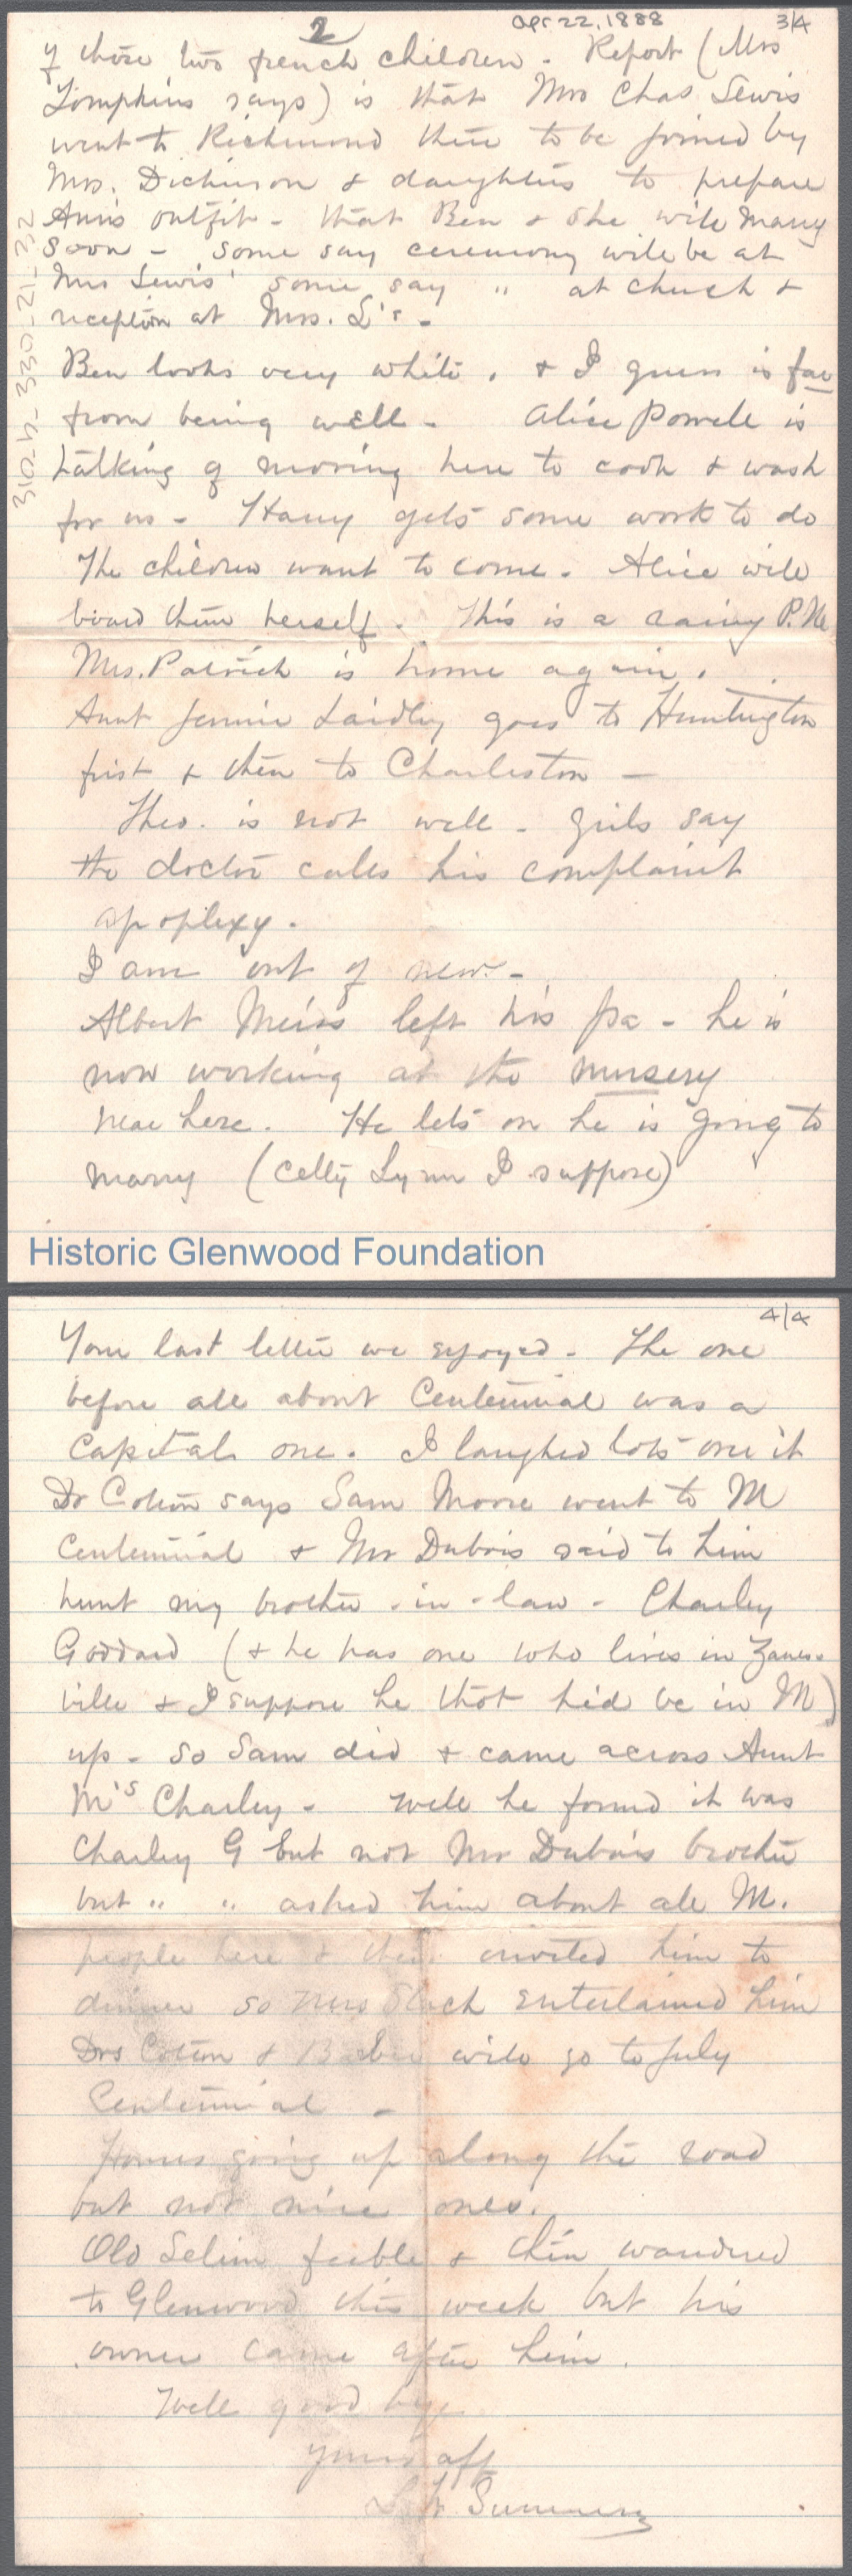 2
Apr. 22, 1888
3/4
of those two french children - Report (Mrs
Tompkins says) is that Mrs Chas Lewis
went to Richmond there to be joined by
Mrs. Dickinson & daughters to prepare
Ann's outfit - that Ben & she will marry
soon - some say ceremony will be at
Mrs Lewis' some say " at church &
reception at Mrs. L's -
Ben looks very white, & I guess is far
from being well - Alice Powell is
talking of moving here to cook & wash
for us - Harry gets some work to do
The children want to come. Alice will
board them herself. This is a rainy P.M.
Mrs. Patrick is home again.
Aunt Jennie Laidley goes to Huntington
first & then to Charleston -
Theo. is not well - girls say
the doctor calls his complaint
apoplexy.
I am out of news -
Albert Meiss left his pa - he is
now working at the nursery
near here. He lets on he is going to
marry (Celly Lynn I suppose)
310-h-330-21-32
Historic Glenwood Foundation
4/4
Your last letter we enjoyed - The one
before all about Centennial was a
Capital one. I laughed lots over it
Dr Coton says Sam Moore went to M
Centennial & Mr Dubois said to him
hunt my brother-in-law - Charley
Goddard (& he has one who lives in Zanes-
ville & I suppose he thot he'd be in M)
up - So Sam did & came across Aunt
M's Charley - Well he found it was
Charley G but not Mr Dubois brother
but " " asked him about all M.
people here & then invited him to
dinner so Mrs Slack entertained him
Drs Coton & Barber will go to July
Centennial -
Homes going up along the road
but not nice ones.
Old Selim feeble & thin wandered
to Glenwood this week but his
owner came after him.
Well good bye
yours aff
L W Summers